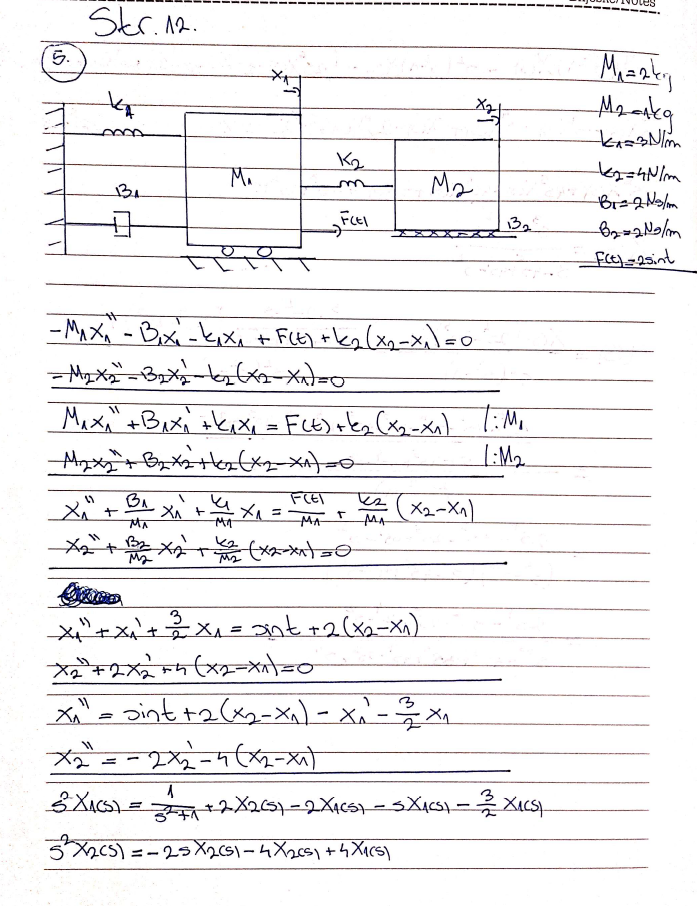 Str. 12.
5.
M₁=2kg
x₁
k₁
x₂
M₂=1kg
k₁=3N/m
K₂
M₁
M₂
k₂=4N/m
B₁
B₁=2Ns/m
F(t)
B₂
B₂=2Ns/m
F(t)=2sint
-M₁x₁'' - B₁x₁' - k₁x₁ + F(t) + k₂(x₂-x₁)=0
-M₂x₂'' - B₂x₂' - k₂(x₂-x₁)=0
M₁x₁'' + B₁x₁' + k₁x₁ = F(t) + k₂(x₂-x₁) /:M₁
M₂x₂'' + B₂x₂' + k₂(x₂-x₁)=0 /:M₂
x₁'' + B₁/M₁ x₁' + k₁/M₁ x₁ = F(t)/M₁ + k₂/M₁ (x₂-x₁)
x₂'' + B₂/M₂ x₂' + k₂/M₂ (x₂-x₁)=0
x₁'' + x₁' + 3/2 x₁ = sint + 2(x₂-x₁)
x₂'' + 2x₂' + 4(x₂-x₁)=0
x₁'' = sint + 2(x₂-x₁) - x₁' - 3/2 x₁
x₂'' = -2x₂' - 4(x₂-x₁)
s²X₁(s) = 1/s²+1 + 2X₂(s) - 2X₁(s) - sX₁(s) - 3/2 X₁(s)
s²X₂(s) = -2sX₂(s) - 4X₂(s) + 4X₁(s)